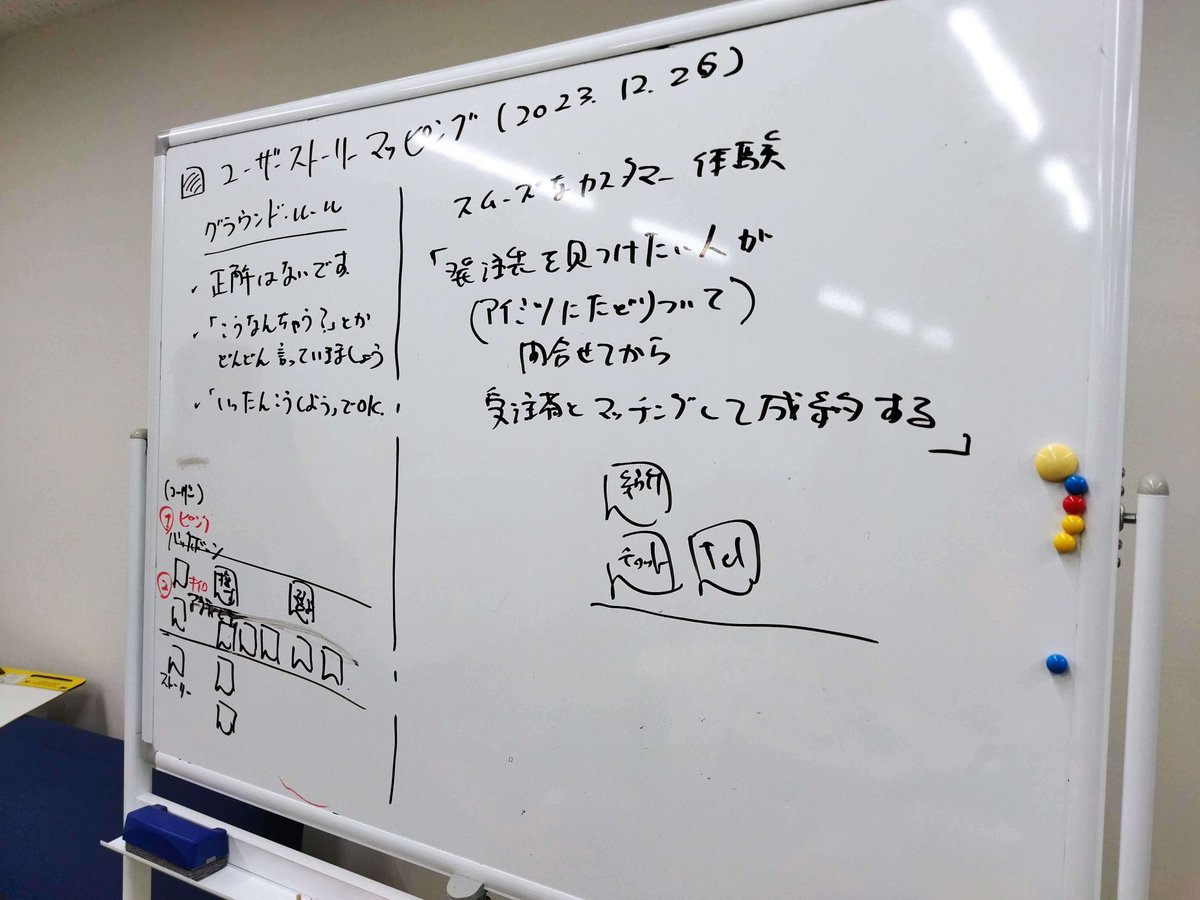 ユーザーストーリーマッピング (2023.12.26)
グラウンド・ルール
・正解はないです
・「こうなんちゃう?」とか
どんどん言っていきましょう
・「いったんこうしよう」でOK.
スムーズなカスタマー体験
「発注先を見つけたい人が
(アイミツにたどりついて)
問合せてから
受注者とマッチングして成約する
」
チャット
Tel
(ユーザー)
① ピンク
バックボーン
② キイロ
ストーリー